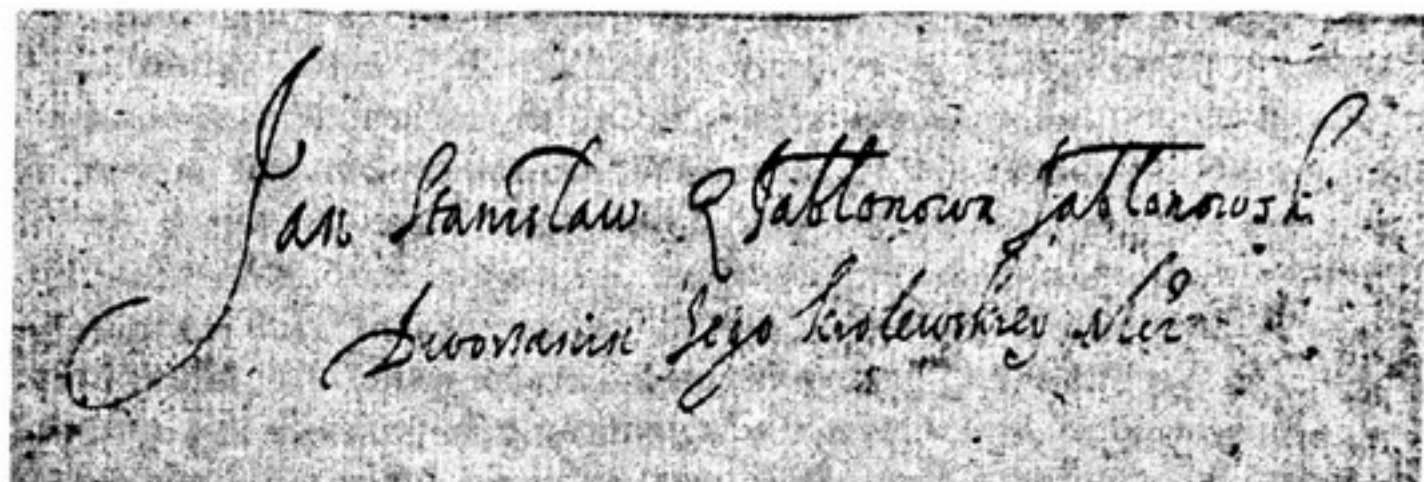 Jan Stanisław z Jabłonowa Jabłonowski
Dworzanin Jego Krolewskiey Mći